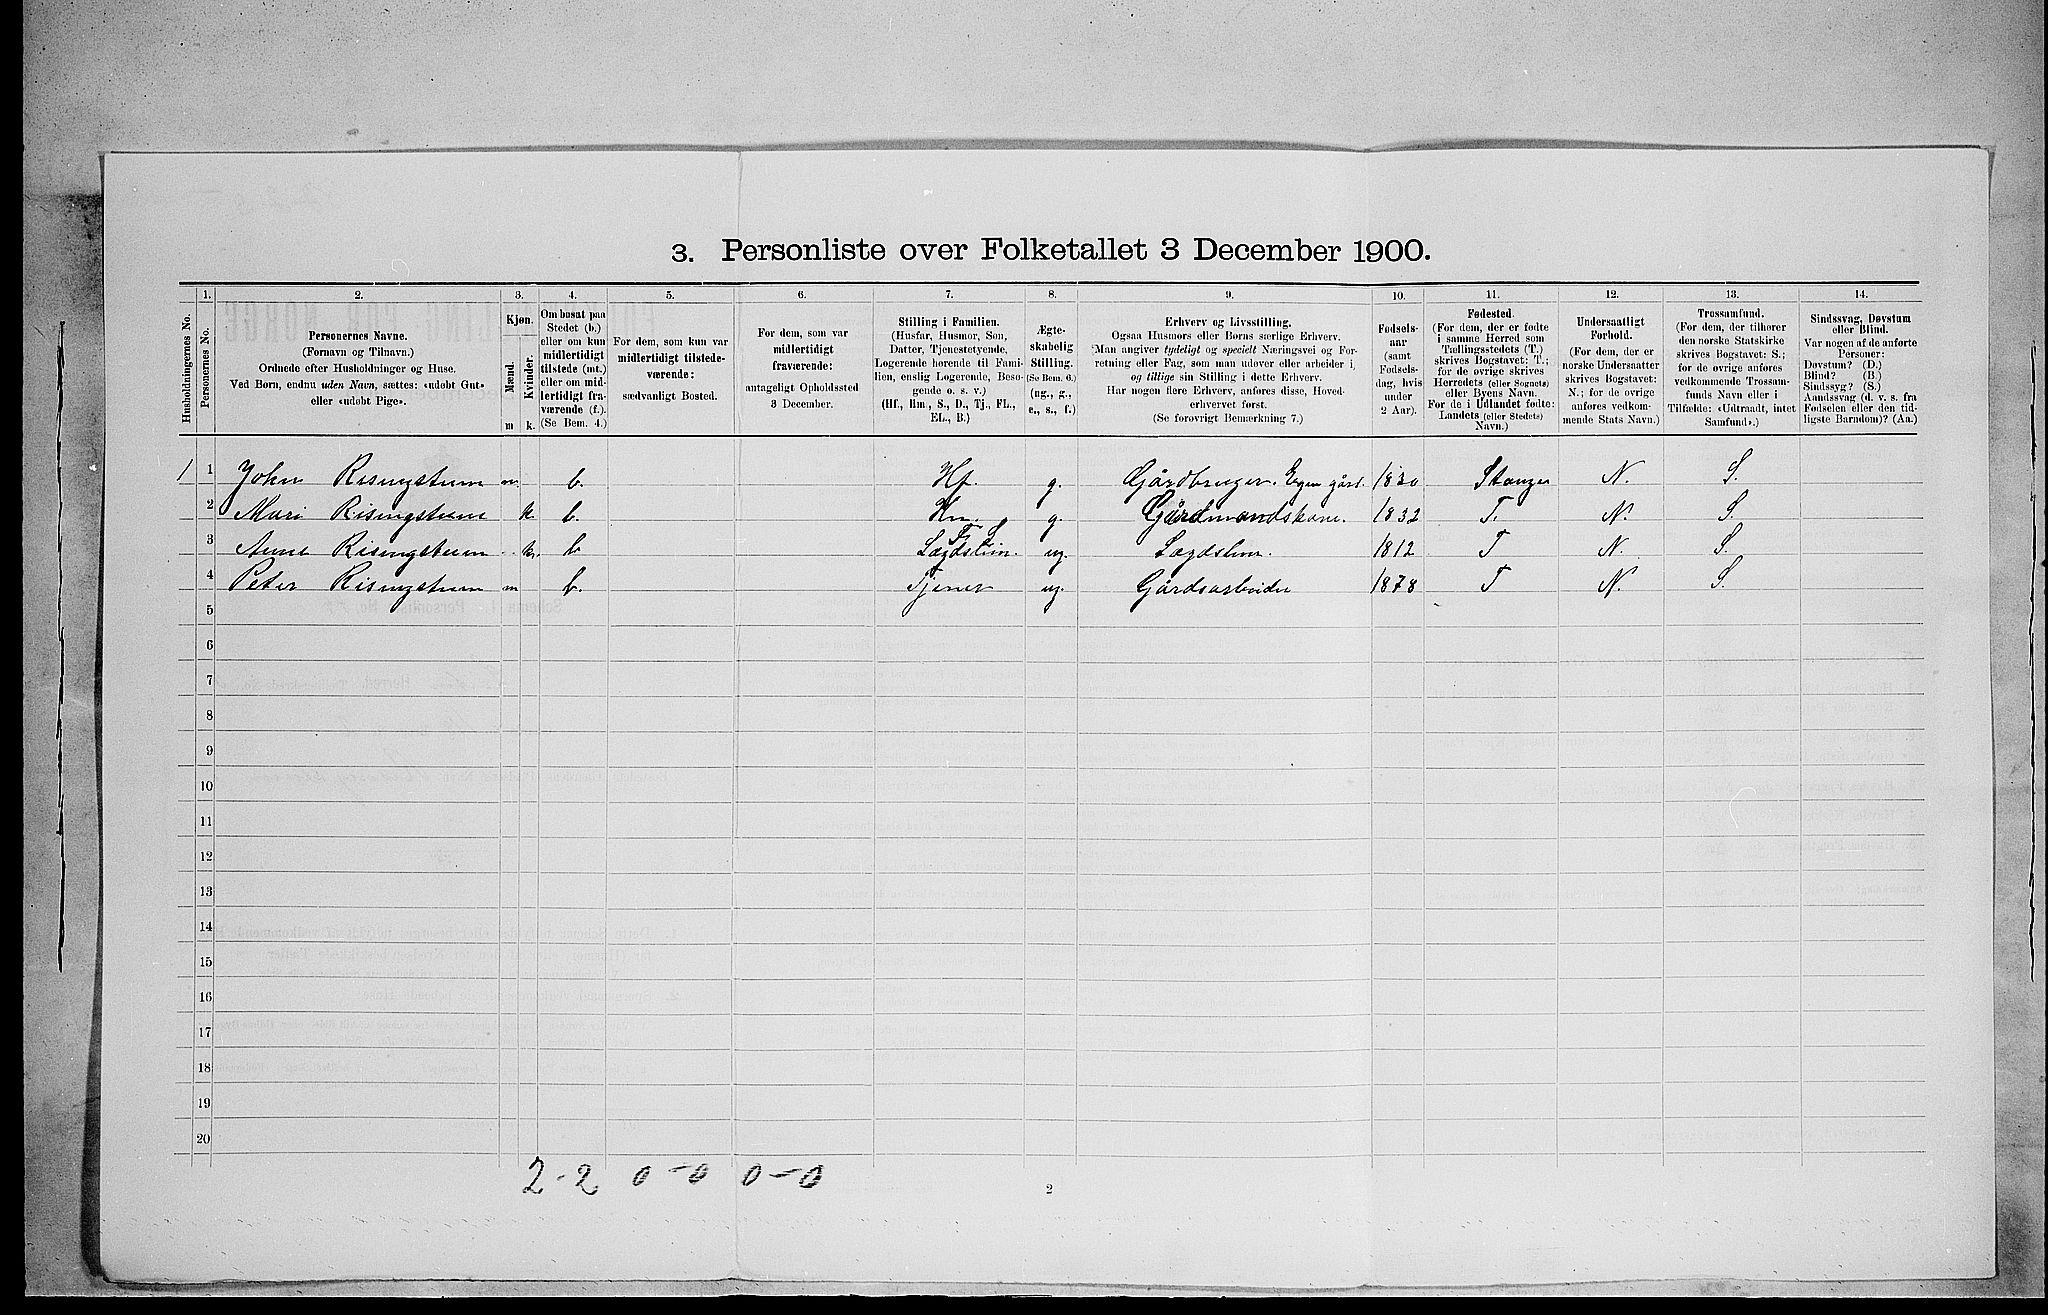 3. Personliste over Folketallet 3 December 1900.
Husholdningernes No.
1.
Personernes No.
2.
Personernes Navne.
(Fornavn og Tilnavn.)
Ordnede efter Husholdninger og Huse.
Ved Børn, endnu uden Navn, sættes: «udøbt Gut»
eller «udøbt Pige».
3.
Kjøn.
Mænd.
Kvinder.
m k.
4.
Om bosat paa
Stedet (b.)
eller om kun
midlertidigt
tilstede (mt.)
eller om mid-
lertidigt fra-
værende (f.).
(Se Bem. 4.)
5.
For dem, som kun var
midlertidigt tilstede-
værende:
sædvanligt Bosted.
6.
For dem, som var
midlertidigt
fraværende:
antageligt Opholdssted
3 December.
7.
Stilling i Familien.
(Husfar, Husmor, Søn,
Datter, Tjenestetyende,
Logerende hørende til Fami-
lien, enslig Logerende, Besø-
gende o. s. v.)
(Hf., Hm., S., D., Tj., FL.,
EL., B.)
8.
Ægte-
skabelig
Stilling.
(Se Bem. 6.)
(ug., g.,
e., s., f.)
9.
Erhverv og Livsstilling.
Ogsaa Husmors eller Børns særlige Erhverv.
Man angiver tydeligt og specielt Næringsvei og For-
retning eller Fag, som man udøver eller arbeider i,
og tillige sin Stilling i dette Erhverv.
Har nogen flere Erhverv, anføres disse, Hoved-
erhvervet først.
(Se forøvrigt Bemærkning 7.)
10.
Fødsels-
aar
(samt
Fødsels-
dag, hvis
under
2 Aar).
11.
Fødested.
(For dem, der er fødte
i samme Herred som
Tællingsstedets (T.)
skrives Bogstavet: T.;
for de øvrige skrives
Herredets (eller Sognets)
eller Byens Navn.
For de i Udlandet fødte:
Landets (eller Stedets)
Navn.)
12.
Undersaatligt
Forhold.
(For dem, der er
norske Undersaatter
skrives Bogstavet:
N.; for de øvrige
anføres vedkom-
mende Stats Navn.)
13.
Trossamfund.
(For dem, der tilhører
den norske Statskirke
skrives Bogstavet: S.;
for de øvrige anføres
vedkommende Trossam-
funds Navn eller i
Tilfælde: «Udtraadt, intet
Samfund».)
14.
Sindssvag, Døvstum
eller Blind.
Var nogen af de anførte
Personer:
Døvstum? (D.)
Blind? (B.)
Sindssyg? (S.)
Aandssvag (d. v. s. fra
Fødselen eller den tid-
ligste Barndom)? (Aa.)
1 1 John Risingstuen m. b. Hf. g. Gårdbruger. Egen gård. 1830 Stange N. S.
2 Mari Risingstuen k. b. Hm. g. Gårdmandskone. 1832 T. N. S.
3 Anne Risingstuen k. b Lægdslem. ug. Lægdslem. 1812 T N. S.
4 Peter Risingstuen m b. Tjener ug. Gårdsarbeider 1878 T N. S.
5
6
7
8
9
10
11
12
13
14
15
16
17
18
19
20
2-2 0-0 0-0
2